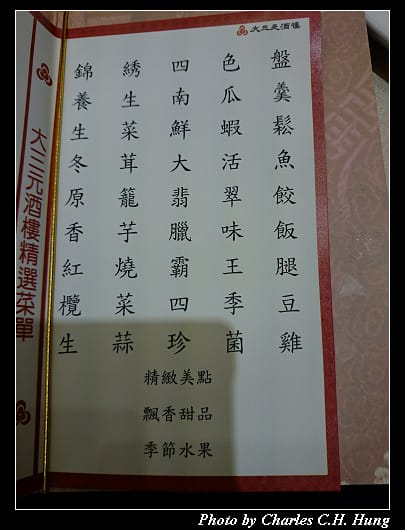 大三元酒樓
大三元酒樓精選菜單
錦綉四色盤
養生南瓜羹
生菜鮮蝦鬆
冬茸大活魚
原籠翡翠餃
香芋臘味飯
紅燒霸王腿
欖菜四季豆
生蒜珍菌雞
精緻美點
飄香甜品
季節水果
Photo by Charles C.H. Hung